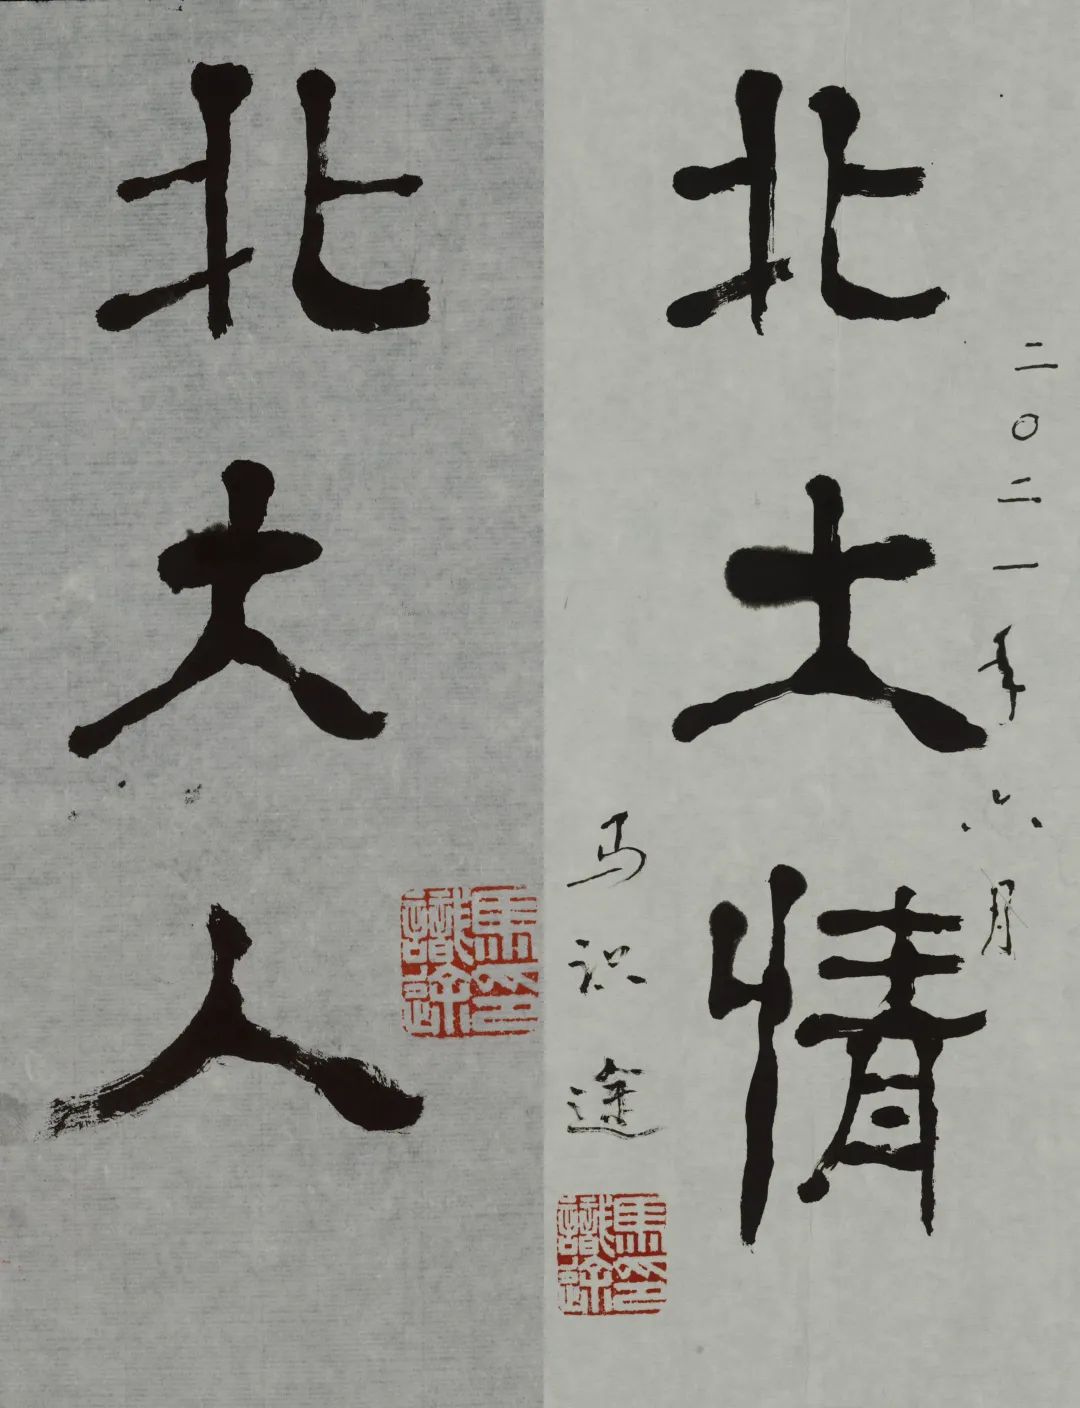 二〇二一年六月
北大情
马识途
馬識途印
馬識途印
北大人